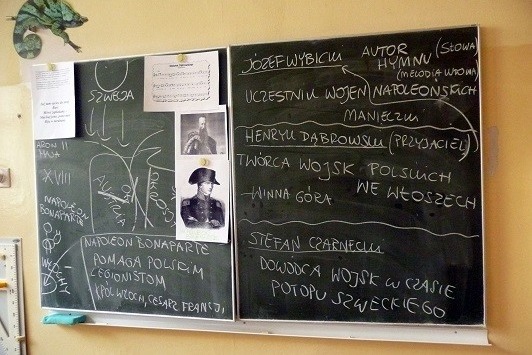 SZWECJA
XVIII
NAPOLEON
BONAPARTE
WŁOCHY
AUSTRIA
NAPOLEON BONAPARTE
POMAGA POLSKIM
LEGIONISTOM
KRÓL WŁOCH, CESARZ FRANCJI
JÓZEF WYBICKI AUTOR (SŁOWA)
HYMNU
(MELODIA LUDOWA)
UCZESTNIK WOJEN NAPOLEOŃSKICH
MANIECZKI
HENRYK DĄBROWSKI (PRZYJACIEL)
TWÓRCA WOJSK POLSKICH
WE WŁOSZECH
-WINNA GÓRA
STEFAN CZARNECKI
DOWÓDCA WOJSK W CZASIE
POTOPU SZWECKIEGO